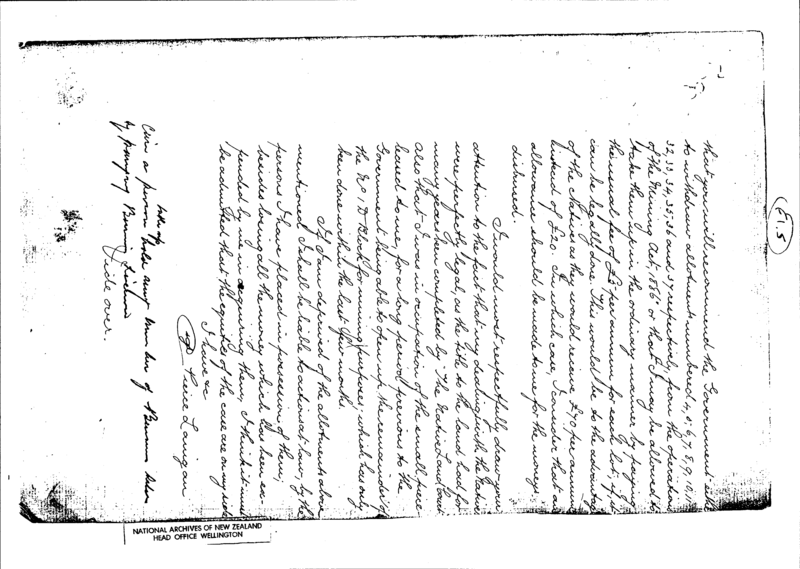 E1.5
that you will recommend the Government either
to withdraw allotments numbered 4, 5, 6, 7, 8, 9, 10, 11,
32, 33, 34, 35, 36 and 37 respectively, from the operation
of the Mining Act, 1886; or that I may be allowed to
take them up in the ordinary manner by paying
the usual fee of £5 per annum for each lot, if it
can be legally done. This would be to the advantage
of the Natives as they would receive £70 per annum
instead of £20. In which case, I consider that an
allowance should be made to me for the money
disbursed.
I would most respectfully draw your
attention to the fact that my dealings with the Natives
were perfectly legal, as the title to the land had for
many years been completed by "The Native Land Court"
also that I was in occupation of the small piece
leased to me, for a long period previous to the
Government being able to open up the remainder of
the No 1 D Block for mining purposes; which has only
been done within the last few months.
If I am deprived of the allotments above
mentioned I shall be liable to actions at law, by the
persons I have placed in possession of them,
besides losing all the money which has been ex-
pended by me in acquiring them, I think it must
be admitted that the equities of the case are on my side
I have &c
Peirce Lanigan
Claim a person
by paying Mining
Vide over.
NATIONAL ARCHIVES OF NEW ZEALAND
HEAD OFFICE WELLINGTON